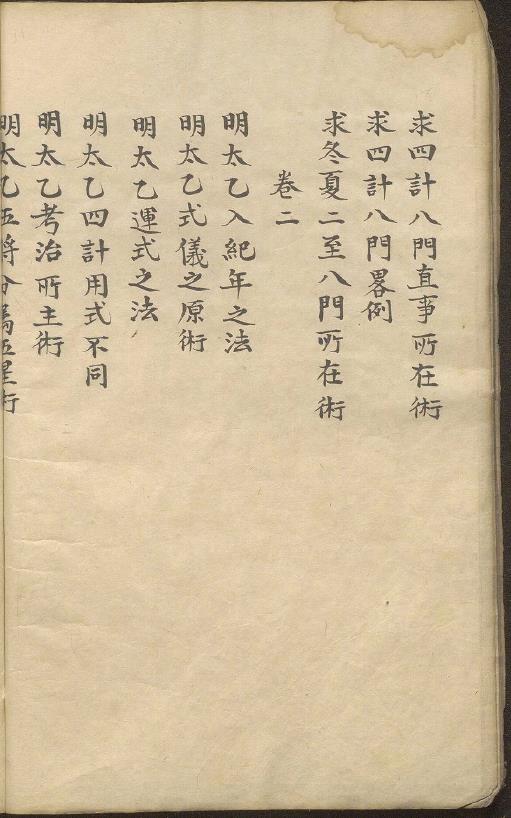 求四計八門直事所在術
求四計八門畧例
求冬夏二至八門所在術
卷二
明太乙入紀年之法
明太乙式儀之原術
明太乙運式之法
明太乙四計用式不同
明太乙考治所主術
明太乙五將分爲五星術